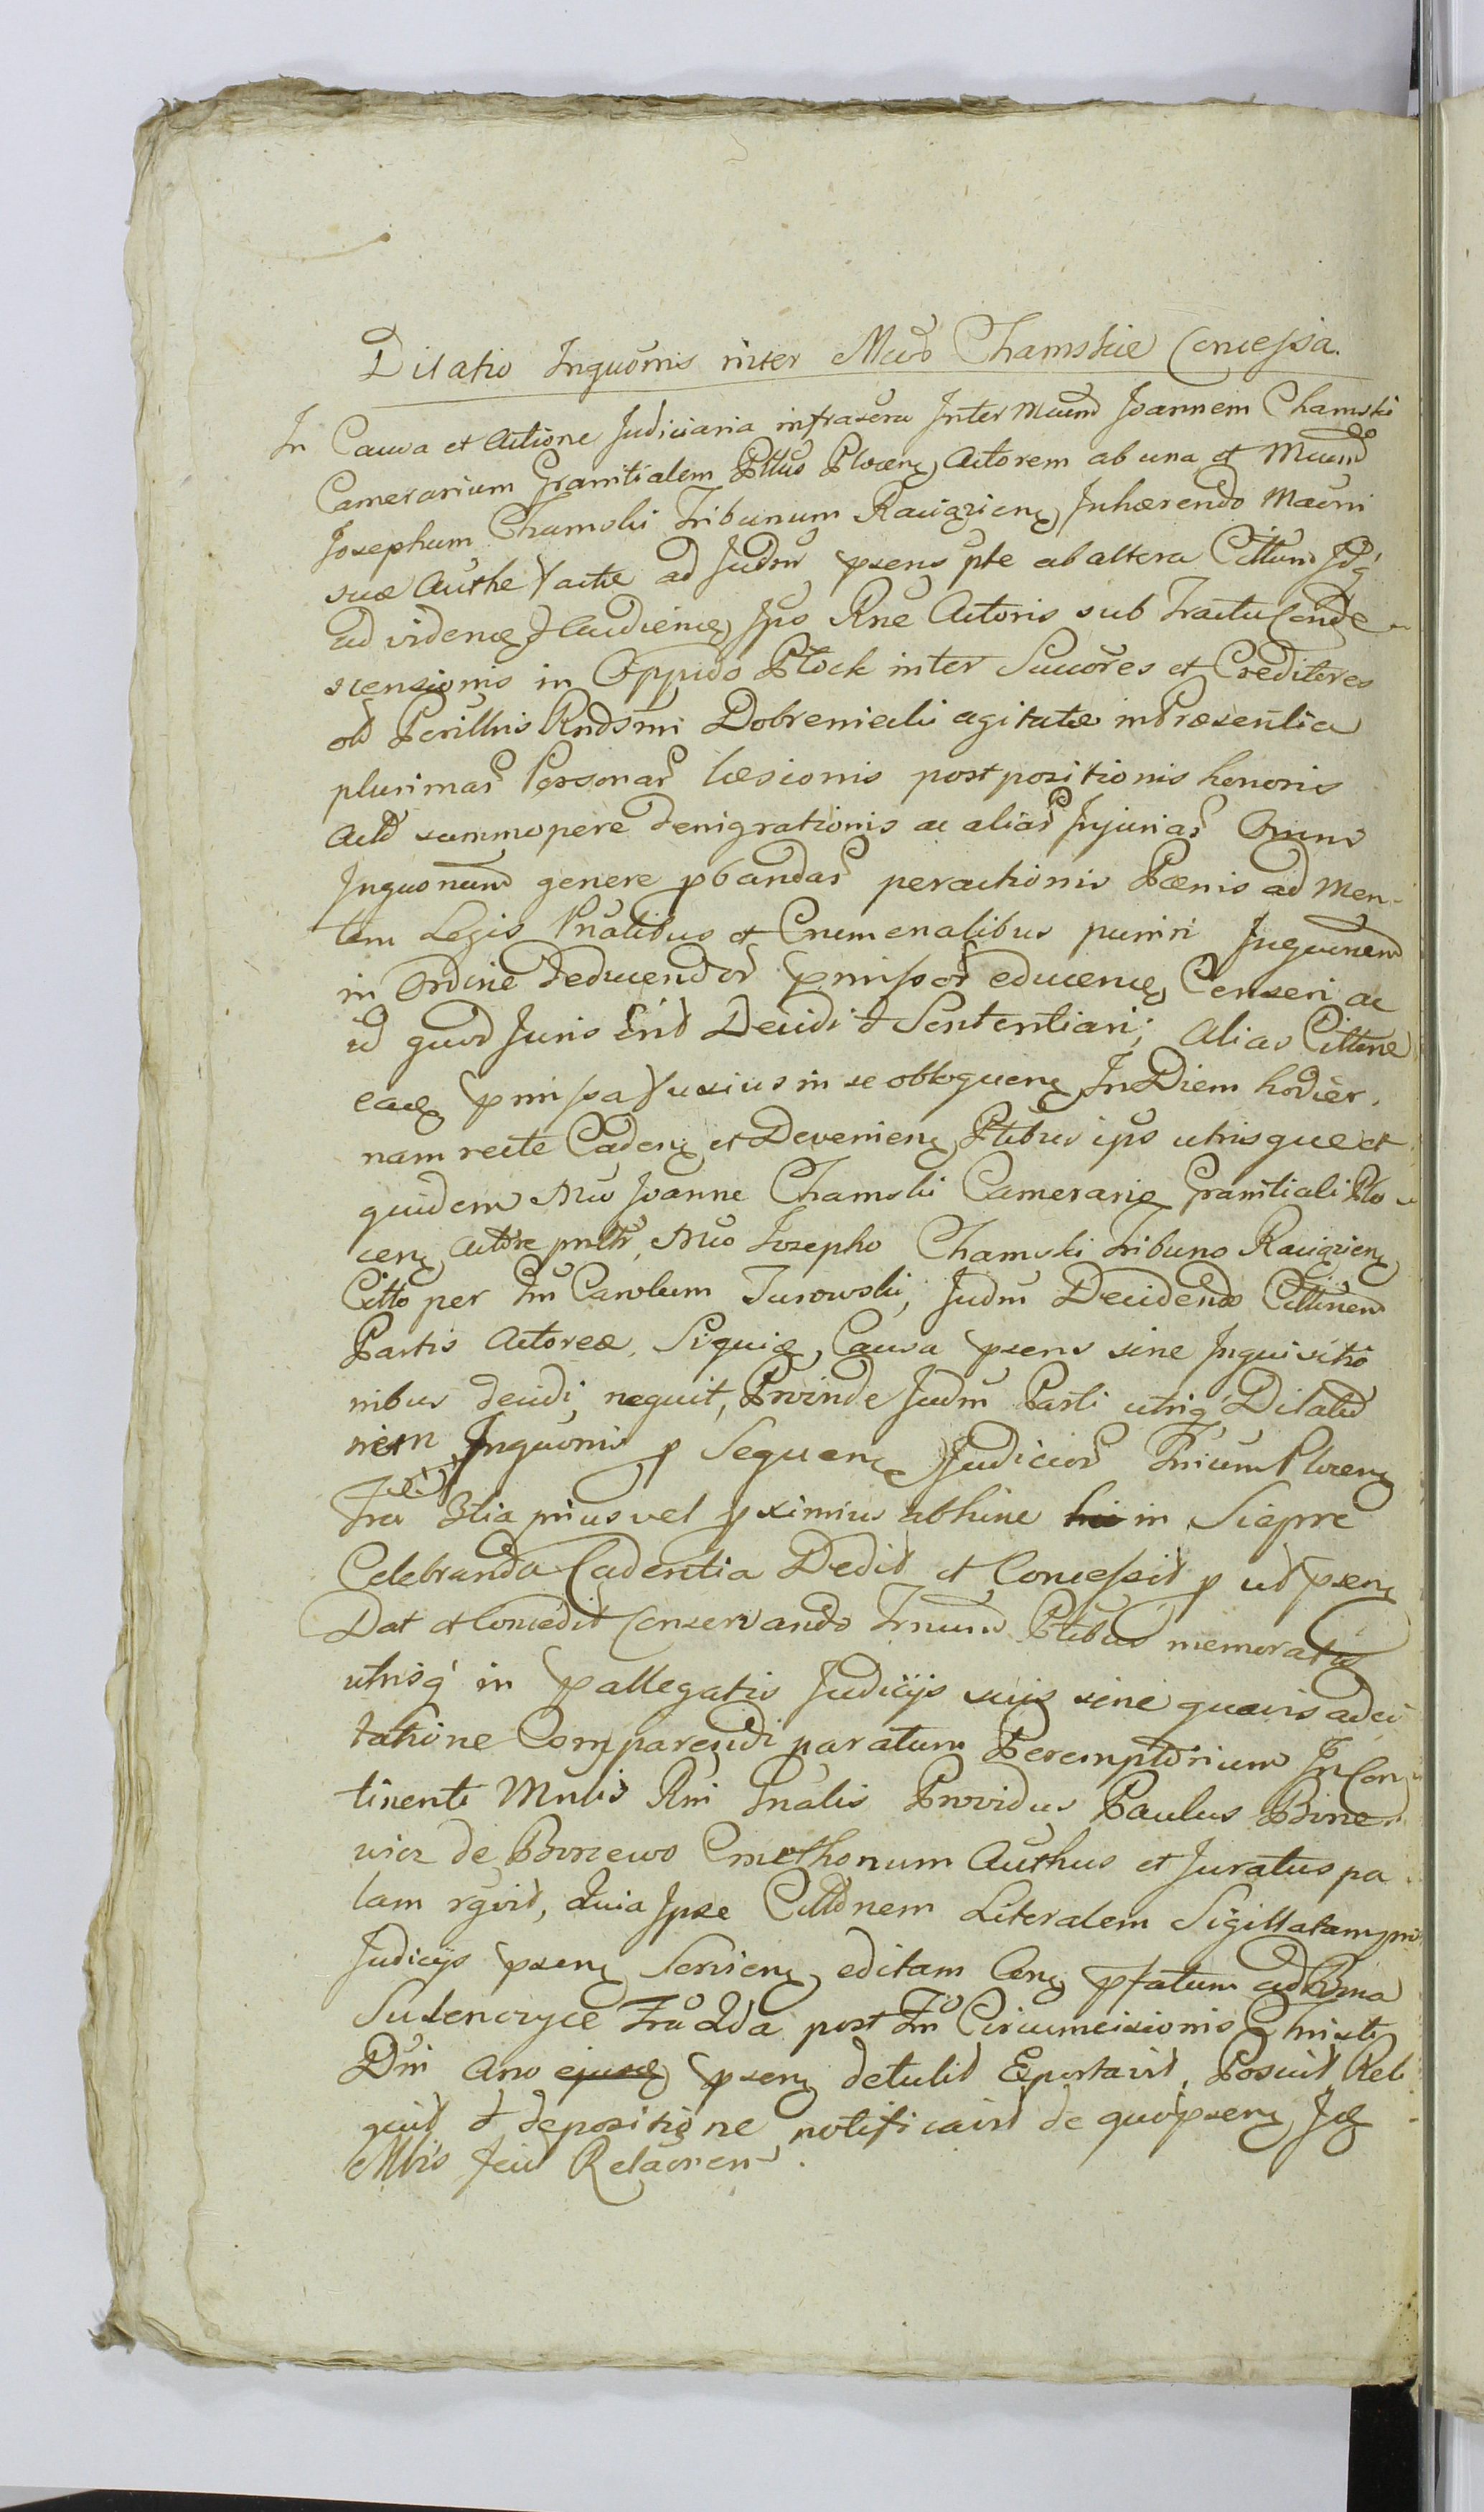 Dilatio Inquōnis inter Mcōs Chamskie Concessa.
In Causa et Actione Judiciaria infrascra Inter Mcum Joannem Chamski
Camerarium Granitialem Pltus Plocen Actorem ab una et Mcum
Josephum Chamski Tribunum Raciązien Inhærendo
suæ factæ ad Judm præsens pte ab altera Cittum Idq
ad viden et audien Ips Rne Actoris sub Tractu Conde-
scensionis in Oppido Płock inter Succōres et Creditores
olī Perillris Rndsmi Dobrenieli agitatæ in Præsentia
plurimar Personar læsionis postpositionis honoris
Actō summopere denigrationis ac aliar Injuriar Omni
Inquōnum genere pbandar peractionis Pænis ad Men-
tem Legis et Cremenalibus puniri Inquōnem
in Ordine deducendor pmissor educen Censeri ac
id quod Juris Erit Decidi et Sententiari; Alias Cittne
eaq pmissa fusius in se obloquen In Diem hodier-
nam recte Caden et Devenien Ptibus ips utrisque et
quidem Mco Joanne Chamski Camerario Granitiali Plo-
cen Actore pnltr, Mco Josepho Chamski Tribuno Raciązien
Citto per Carolum Turowski, Judm Decidendo Cittnem
Partis Actoreæ, Siquid, Causa psens sine Inquisitio
nibus decidi nequit, Proinde Judm Parti utriq Dilatio
nem Inquōnis p Sequen Judicior Trium Plocen
Fra 3tia prius vel pximius abhinc in Sieprc
Celebranda Cadentia Dedit et Concessit p ut psen
Dat et Concedit Conservando Trnum Ptibus memoratis
utrisq in pallegatis Judicijs suis sine quavis adci
tatione Comparendi paratum Peremptorium In Con-
tinenti Mnlis Rni Gnalis Providus Paulus
de Borzewo Cmethonum Authus et Juratus pa
lam rgvit, Quia Ipse Cittōnem Literalem Sigillatam pn
Judicijs psen Servien editam Cen pfatum ad Bona
Sulenczyce Fra 2da post Fm Circumcisionis Christi
Dni Ano ejusq psen detulit Exportavit, Posuit Reli
quit et depositione notificavit de quo psen Jdq
Mtris fecit Relaōnem.